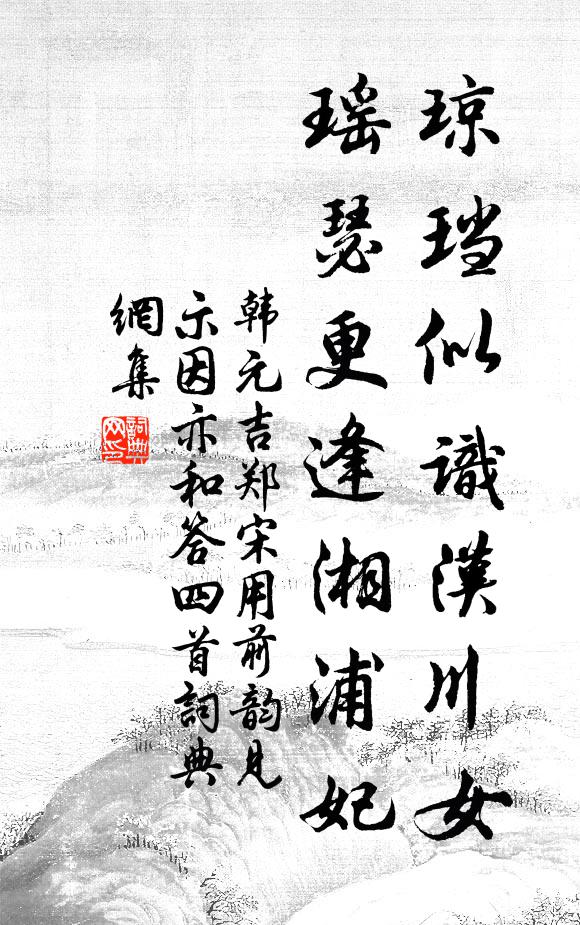 琼珰似識漢川女
瑶瑟更逢湘浦妃
韩元吉郑宋用前韵见
示因亦和答四首詞典
網集
詞典
网印